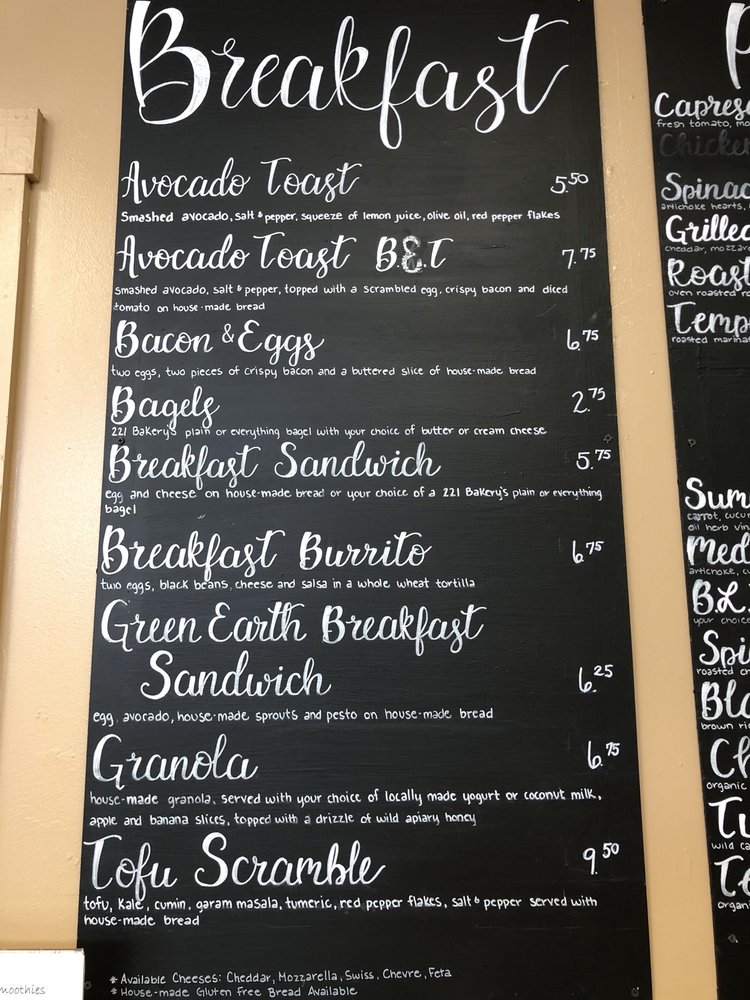 Breakfast
Avocado Toast 5.50
Smashed avocado, salt & pepper, squeeze of lemon juice, olive oil, red pepper flakes
Avocado Toast B.E.T 7.75
smashed avocado, salt & pepper, topped with a scrambled egg, crispy bacon and diced
tomato on house-made bread
Bacon & Eggs 6.75
two eggs, two pieces of crispy bacon and a buttered slice of house-made bread
Bagels 2.75
221 Bakery's plain or everything bagel with your choice of butter or cream cheese
Breakfast Sandwich 5.75
egg and cheese on house-made bread or your choice of a 221 Bakery's plain or everything
bagel
Breakfast Burrito 6.75
two eggs, black beans, cheese and salsa in a whole wheat tortilla
Green Earth Breakfast
Sandwich 6.25
egg, avocado, house-made sprouts and pesto on house-made bread
Granola 6.75
house-made granola, served with your choice of locally made yogurt or coconut milk,
apple and banana slices, topped with a drizzle of wild apiary honey
Tofu Scramble 9.50
tofu, kale, cumin, garam masala, tumeric, red pepper flakes, salt & pepper served with
house-made bread
* Available Cheeses: Cheddar, Mozzarella, Swiss, Chevre, Feta
* House-made Gluten Free Bread Available
moothies
P
Capres
fresh tomato, mo
Chicken
Spinac
artichoke hearts,
Grilled
cheddar, mozzar
Roast
oven roasted
Temp
roasted marina
Sum
carrot, cucu
oil herb vin
Med
artichoke, c
B.L.
your choice
Spi
roasted ch
Bla
brown ri
Ch
organic
Tu
wild ca
Te
organi